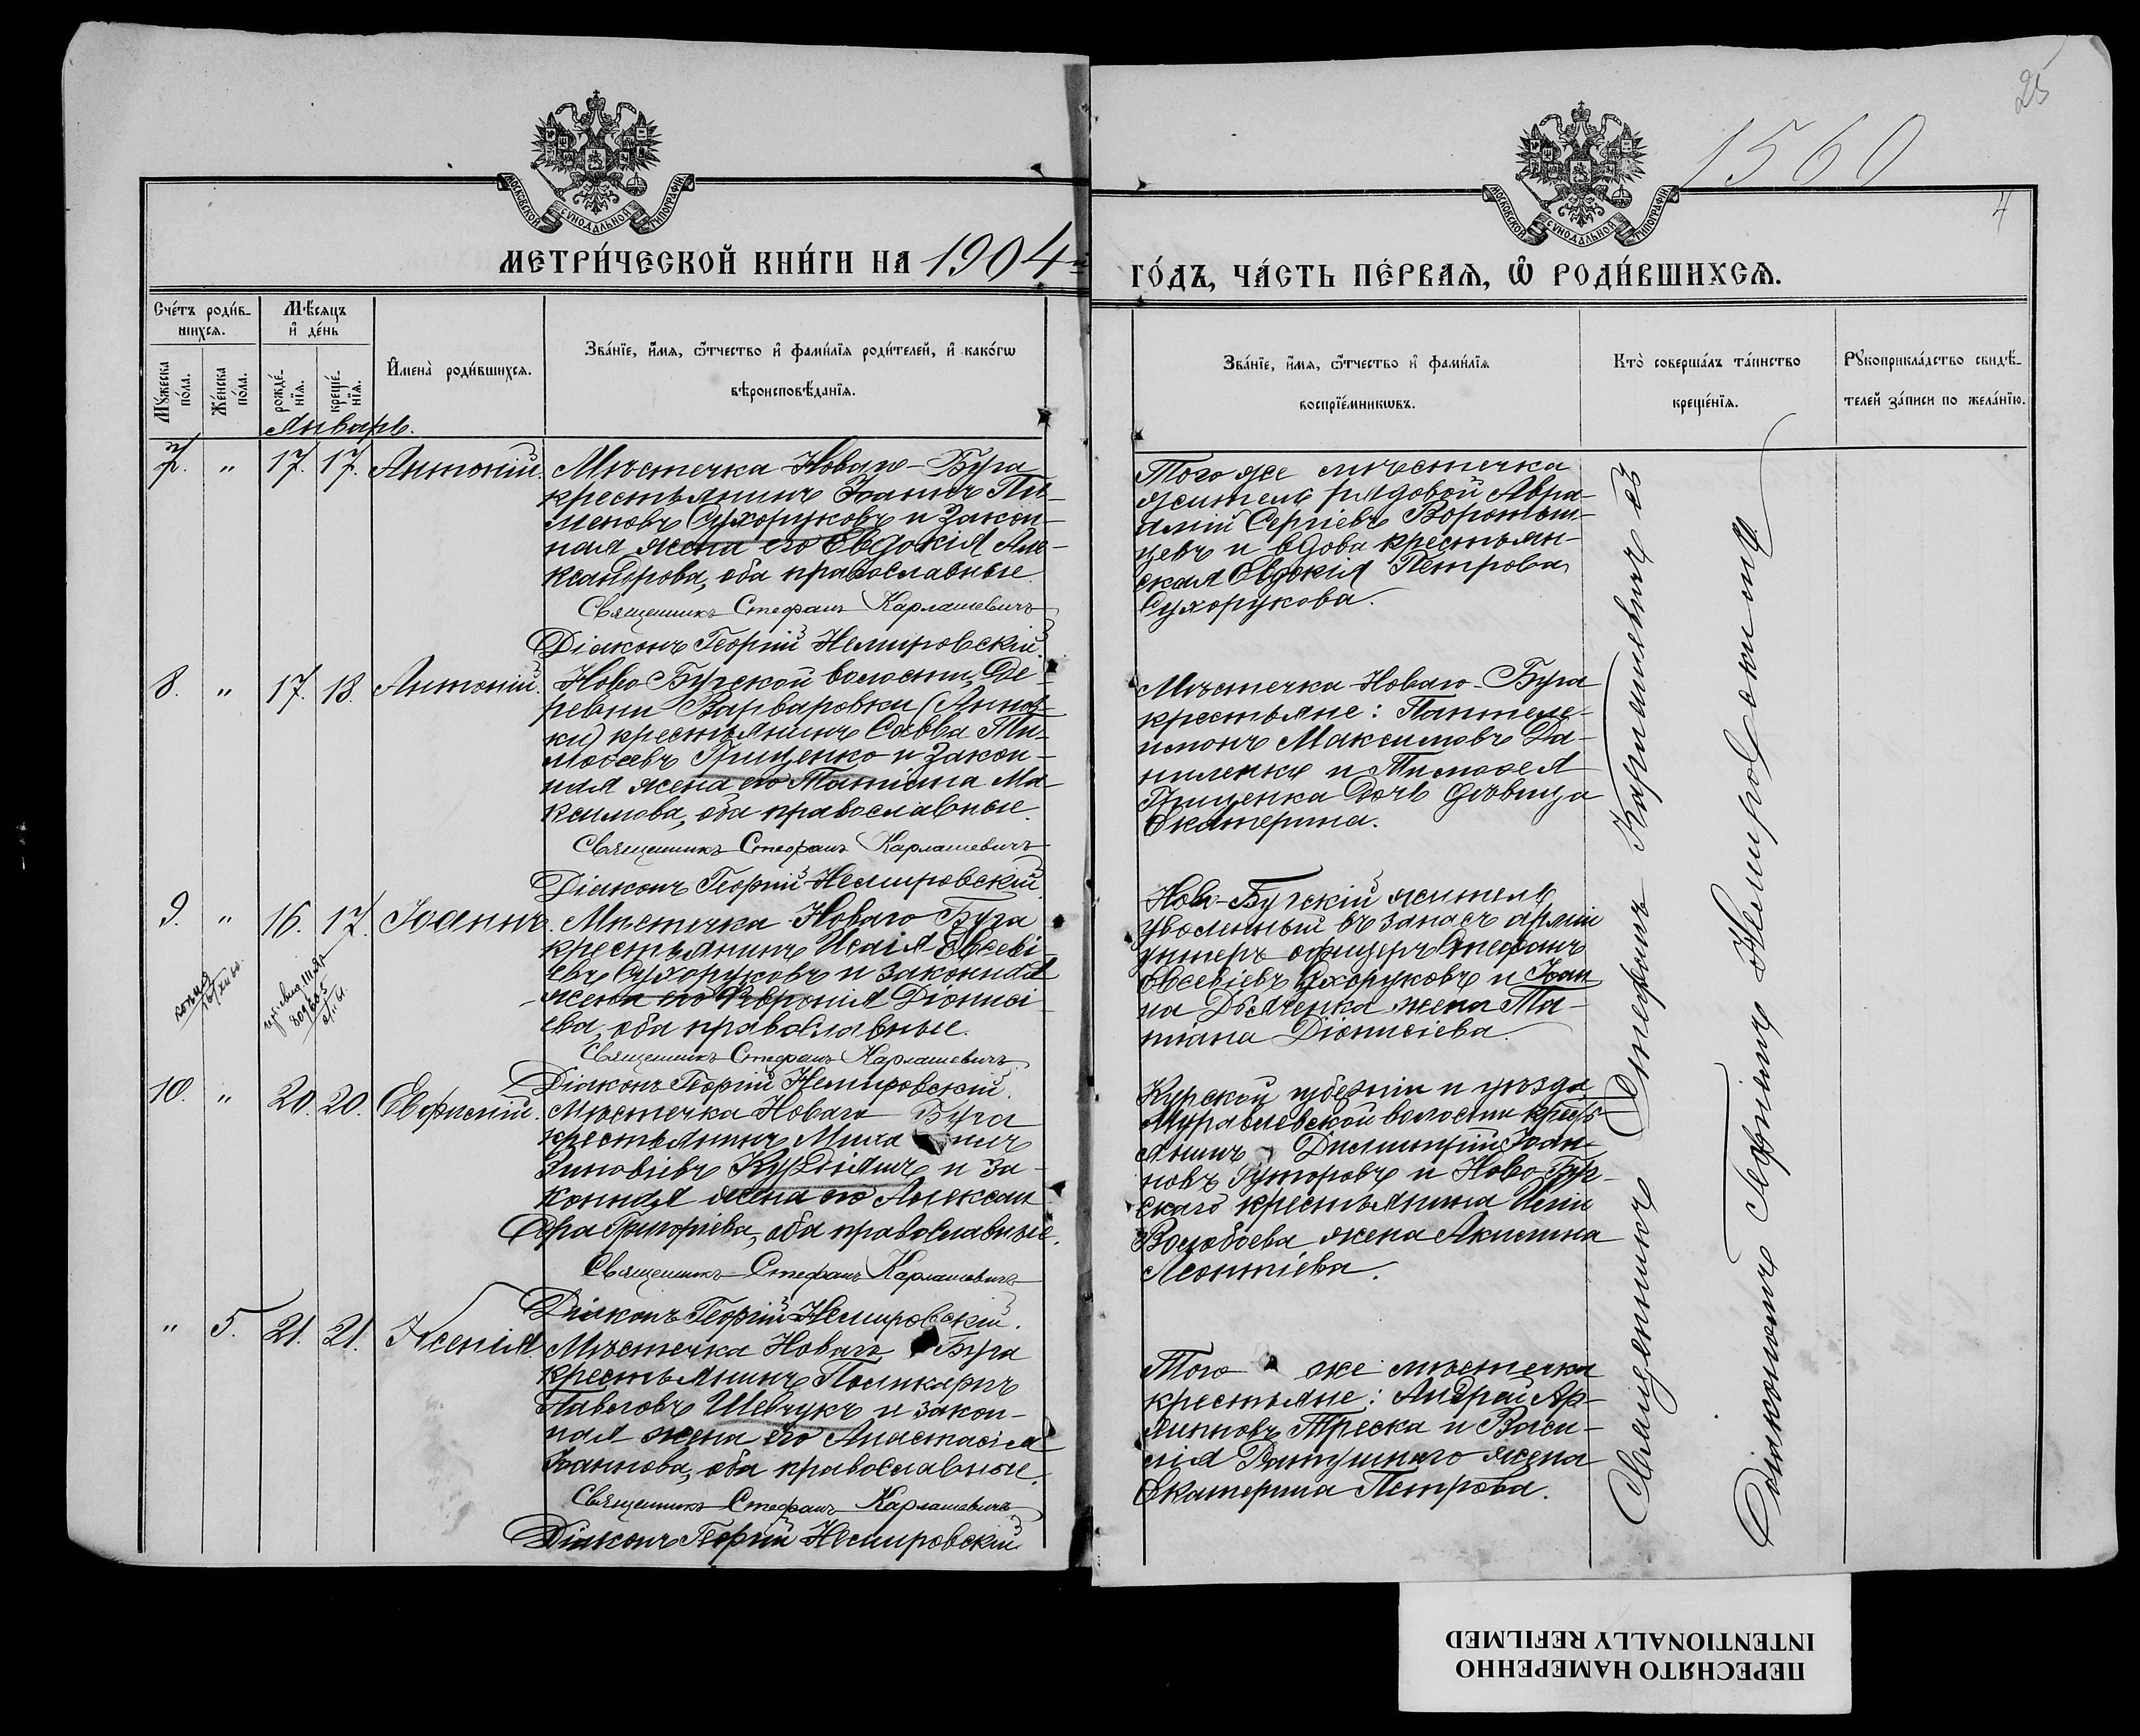 25
1560
4
МОСКОВСКОЙ СѴНОДАЛЬНОЙ ТИПОГРАФІИ
МОСКОВСКОЙ СѴНОДАЛЬНОЙ ТИПОГРАФІИ
МЕТРИ́ЧЕСКОЙ КНИ́ГИ НА 1904-й
ГО́ДЪ, ЧА́СТЬ ПЕ́РВАѦ, Ѡ РОДИ́ВШИХСѦ.
Сче́тъ роди́в-
шихсѧ.
Мѣ́сѧцъ
и де́нь
Мꙋ́жеска по́ла.
Же́нска по́ла.
рожде́-
нїѧ.
креще́-
нїѧ.
Имена̀ роди́вшихсѧ.
Зва́нїе, и́мѧ, ѻ҆́тчество и фами́лїѧ роди́телей, и како́гѡ
вѣроисповѣ́данїѧ.
Зва́нїе, и́мѧ, ѻ҆́тчество и фами́лїѧ
воспрїе́мникѡвъ.
Кто̀ соверша́лъ та́инство
креще́нїѧ.
Рꙋкоприкла́дство свидѣ́-
телей за́писи по жела́нїю.
Январь.
7. " 17. 17. Антоній.
Мѣстечка Новаго-Буга
крестьянинъ Іоаннъ Пи-
меновъ Сухоруковъ и закон-
ная жена его Евдокія Але-
ксандрова, оба православные.
Священникъ Стефанъ Карлашевичъ
Діаконъ Георгій Немировскій.
Того же мѣстечка
житель рядовой Авра-
амій Сергіевъ Воронын-
цевъ и вдова крестьян-
ская Евдокія Петрова
Сухорукова.
8. " 17. 18. Антоній.
Ново-Бугской волости, де-
ревни Варваровки (Аннов-
ки) крестьянинъ Савва Ти-
моѳеевъ Грищенко и закон-
ная жена его Татіана Ма-
ксимова, оба православные.
Священникъ Стефанъ Карлашевичъ
Діаконъ Георгій Немировскій
Мѣстечка Новаго-Буга
крестьяне: Пантеле-
имонъ Максимовъ Да-
ниленко и Тимоѳея
Грищенка дочь дѣвица
Екатерина.
9. " 16. 17. Іоаннъ.
Мѣстечка Новаго Буга
крестьянинъ Исаія Евсеві-
евъ Сухоруковъ и законная
жена его Февронія Діонисі-
ева, оба православные.
Священникъ Стефанъ Карлашевичъ
Діаконъ Георгій Немировскій.
Ново-Бугскій житель
уволенный въ запасъ арміи
унтеръ офицеръ Стефанъ
Евсевіевъ Сухоруковъ и Іоан-
на Дьяченка жена Та-
тіана Діонисіева.
10. " 20. 20. Евфимій.
Мѣстечка Новаго Буга
крестьянинъ
Зиновіевъ и за-
конная жена его Алексан-
дра Григорьева, оба православные.
Священникъ Стефанъ Карлашевичъ
Діаконъ Георгій Немировскій.
Курской губерніи и уѣзда
волости кресть-
янинъ Димитрій Іоан-
новъ и Ново-Буг-
скаго крестьянина Иліи
Воробьева жена Акилина
Леонтіева.
" 5. 21. 21. Ксенія.
Мѣстечка Новаго Буга
крестьянинъ Поликарпъ
Павловъ Шевчукъ и закон-
ная жена его Анастасія
Іоаннова, оба православные.
Священникъ Стефанъ Карлашевичъ
Діаконъ Георгій Немировскій
Того же мѣстечка
крестьяне: Андрей
Треска и Васи-
лія Ратушнаго жена
Екатерина Петрова.
Священникъ Стефанъ Карлашевичъ съ
Діакономъ Георгіемъ Немировскимъ.
ПЕРЕСНЯТО НАМЕРЕННО
INTENTIONALLY REFILMED